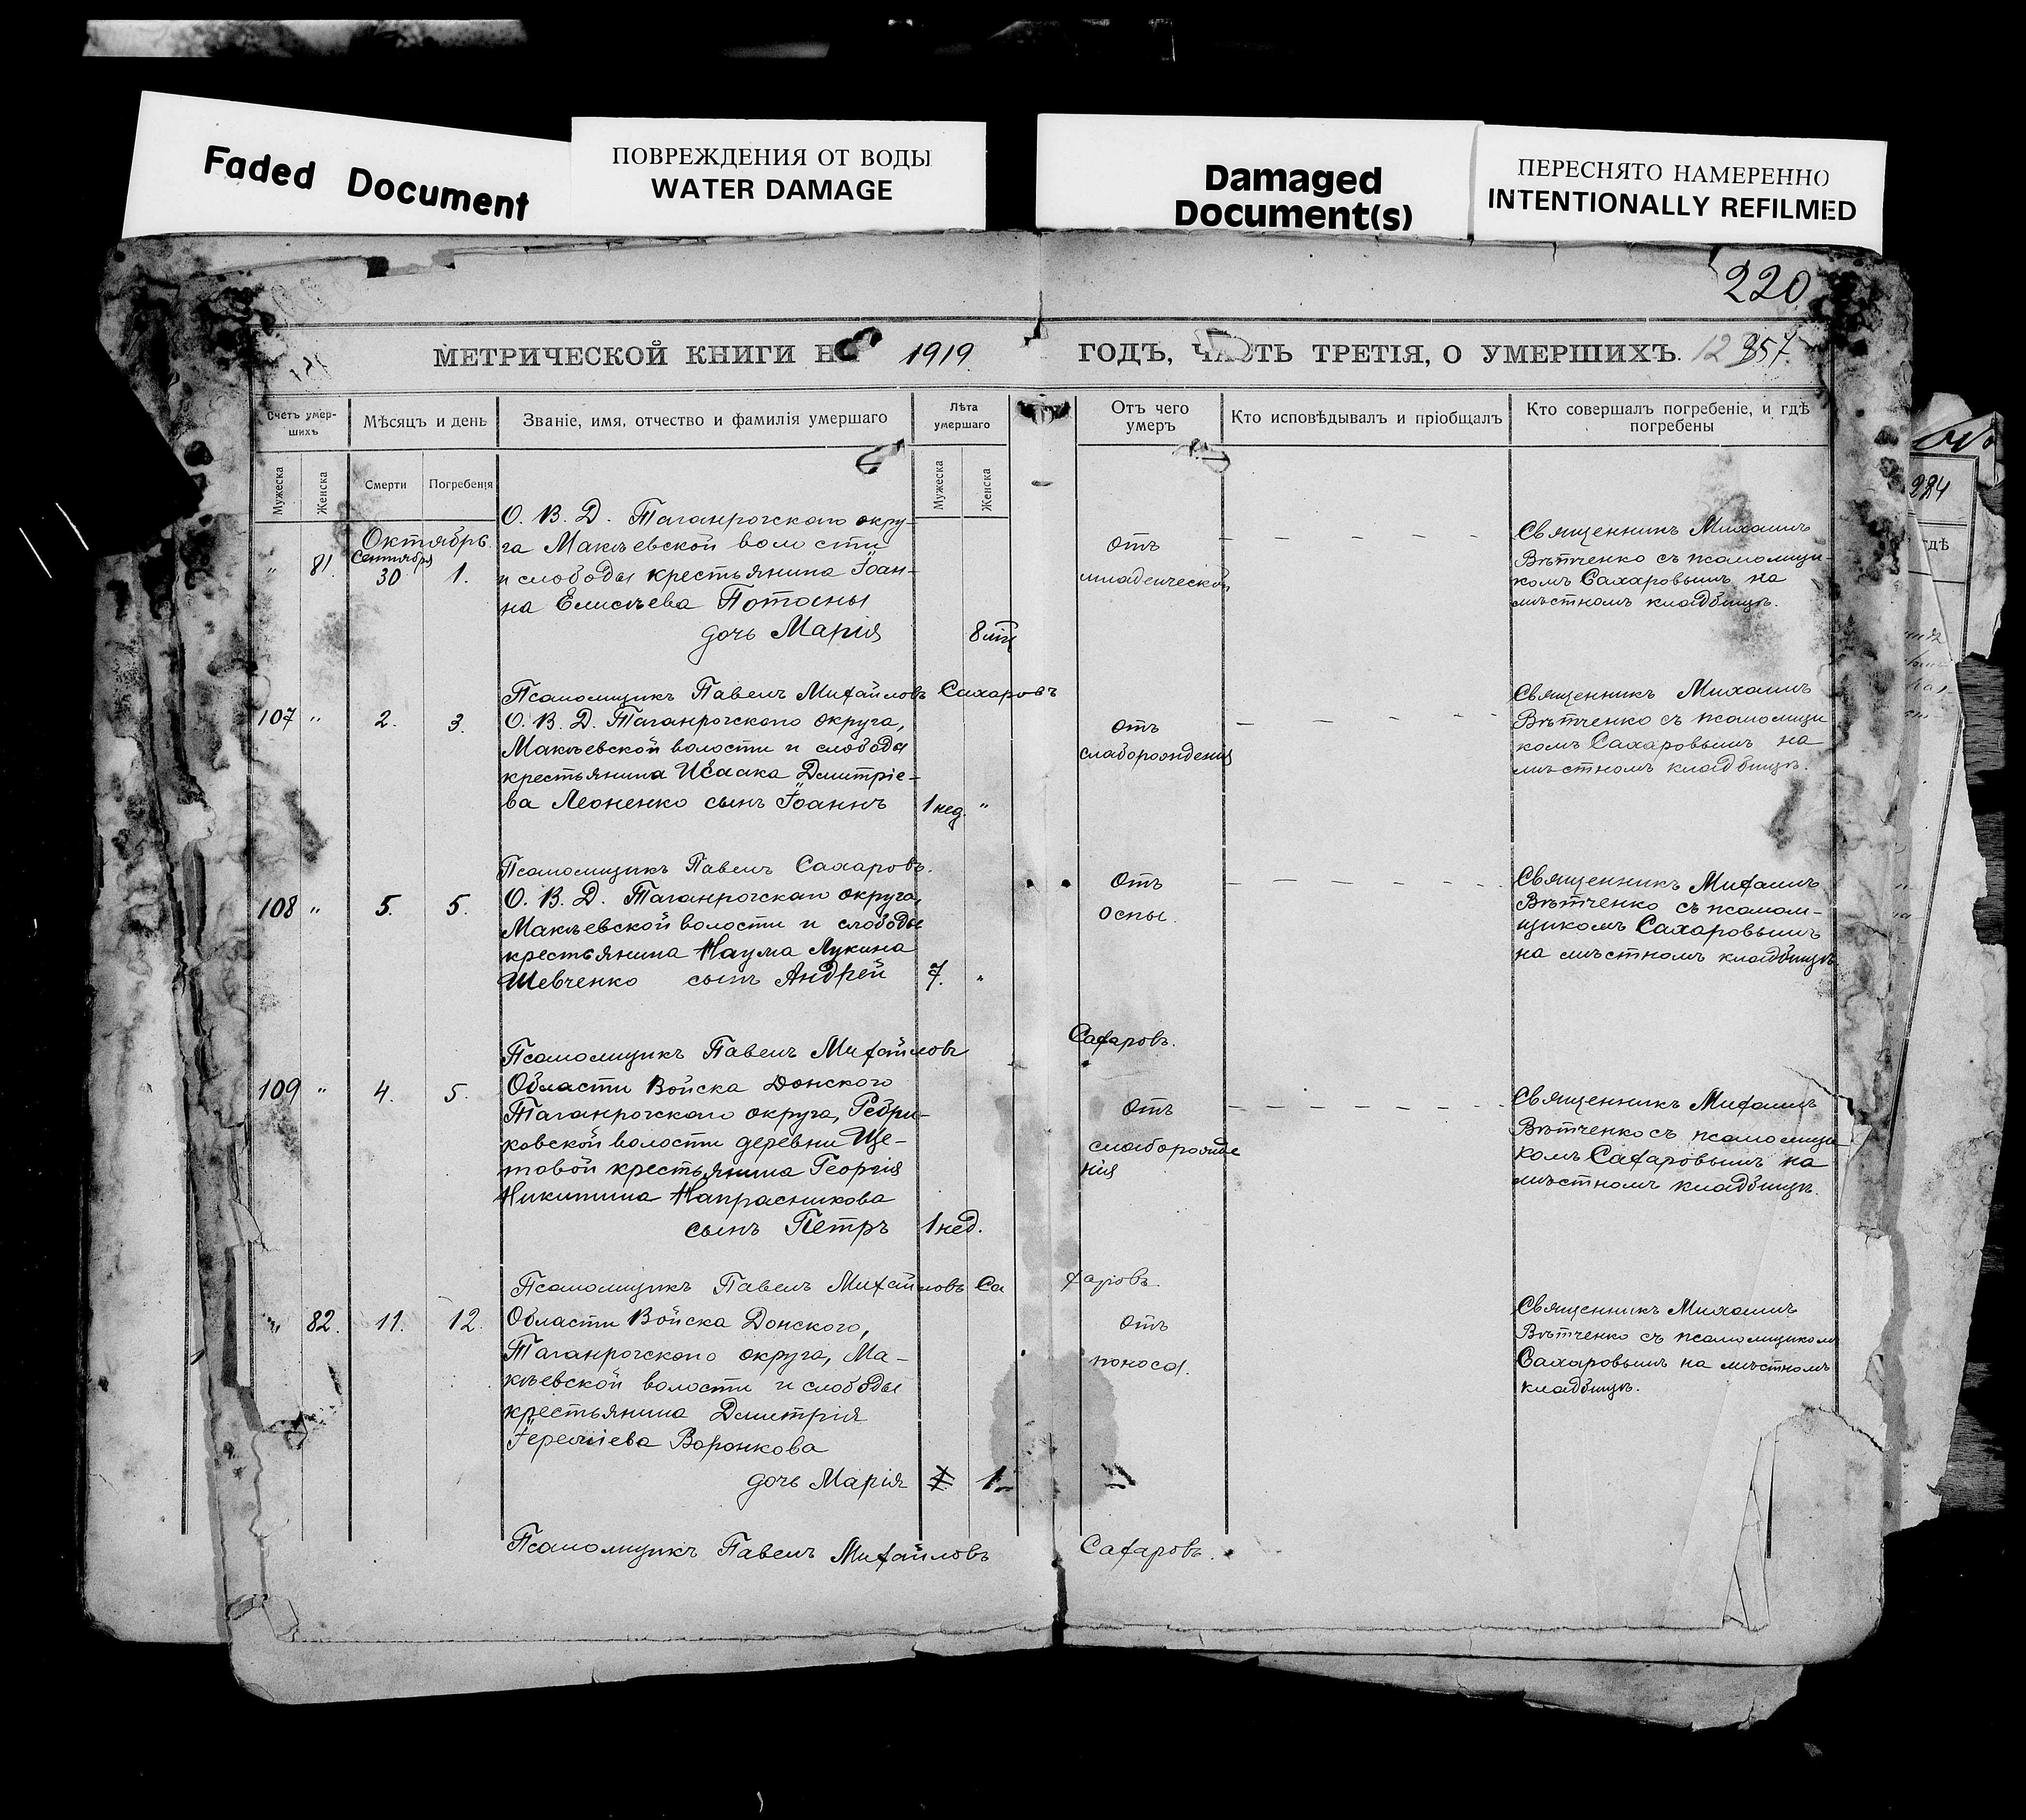 Faded Document
ПОВРЕЖДЕНИЯ ОТ ВОДЫ
WATER DAMAGE
Damaged
Document(s)
ПЕРЕСНЯТО НАМЕРЕННО
INTENTIONALLY REFILMED
220
МЕТРИЧЕСКОЙ КНИГИ НА 1919 ГОДЪ, ЧАСТЬ ТРЕТІЯ, О УМЕРШИХЪ. 357.
Счетъ умер-
шихъ
Мѣсяцъ и день
Званіе, имя, отчество и фамилія умершаго
Лѣта
умершаго
Отъ чего
умеръ
Кто исповѣдывалъ и пріобщалъ
Кто совершалъ погребеніе, и гдѣ
погребены
Мужеска
Женска
Смерти
Погребенія
Мужеска
Женска
Октябрь
" 81. Сентября 30 1.
О. В. Д. Таганрогскаго окру-
га Макѣевской волости
и слободы крестьянина Іоан-
на Елисѣева Потаены
дочь Марія 8 мѣс
Отъ
младенческой
Священникъ Михаилъ
Вѣтченко съ псаломщи-
комъ Сахаровымъ на
мѣстномъ кладбищѣ.
Псаломщикъ Павелъ Михайловъ Сахаровъ
107 " 2. 3.
О. В. Д. Таганрогскаго округа,
Макѣевской волости и слободы
крестьянина Исаака Дмитріе-
ва Леоненко сынъ Іоаннъ 1 нед. "
Отъ
слаборожденія
Священникъ Михаилъ
Вѣтченко съ псаломщи
комъ Сахаровымъ на
мѣстномъ кладбищѣ.
Псаломщикъ Павелъ Сахаровъ.
108 " 5. 5.
О. В. Д. Таганрогскаго округа,
Макѣевской волости и слободы
крестьянина Наума Лукина
Шевченко сынъ Андрей 7. "
Отъ
оспы.
Священникъ Михаилъ
Вѣтченко съ псалом-
щикомъ Сахаровымъ
на мѣстномъ кладбищѣ
Псаломщикъ Павелъ Михайловъ Сахаровъ.
109 " 4. 5.
Области Войска Донского
Таганрогскаго округа, Ребри-
ковской волости деревни Ще-
товой крестьянина Георгія
Никитина Напрасникова
сынъ Петръ 1 нед.
Отъ
слаборожде
нія
Священникъ Михаилъ
Вѣтченко съ псаломщи
комъ Сахаровымъ на
мѣстномъ кладбищѣ.
Псаломщикъ Павелъ Михайловъ Сахаровъ.
" 82. 11. 12.
Области Войска Донского,
Таганрогскаго округа, Ма-
кѣевской волости и слободы
крестьянина Дмитрія
Іереміева Воронкова
дочь Марія 1
Отъ
поноса.
Священникъ Михаилъ
Вѣтченко съ псаломщикомъ
Сахаровымъ на мѣстномъ
кладбищѣ.
Псаломщикъ Павелъ Михайловъ Сахаровъ.
224
гдѣ